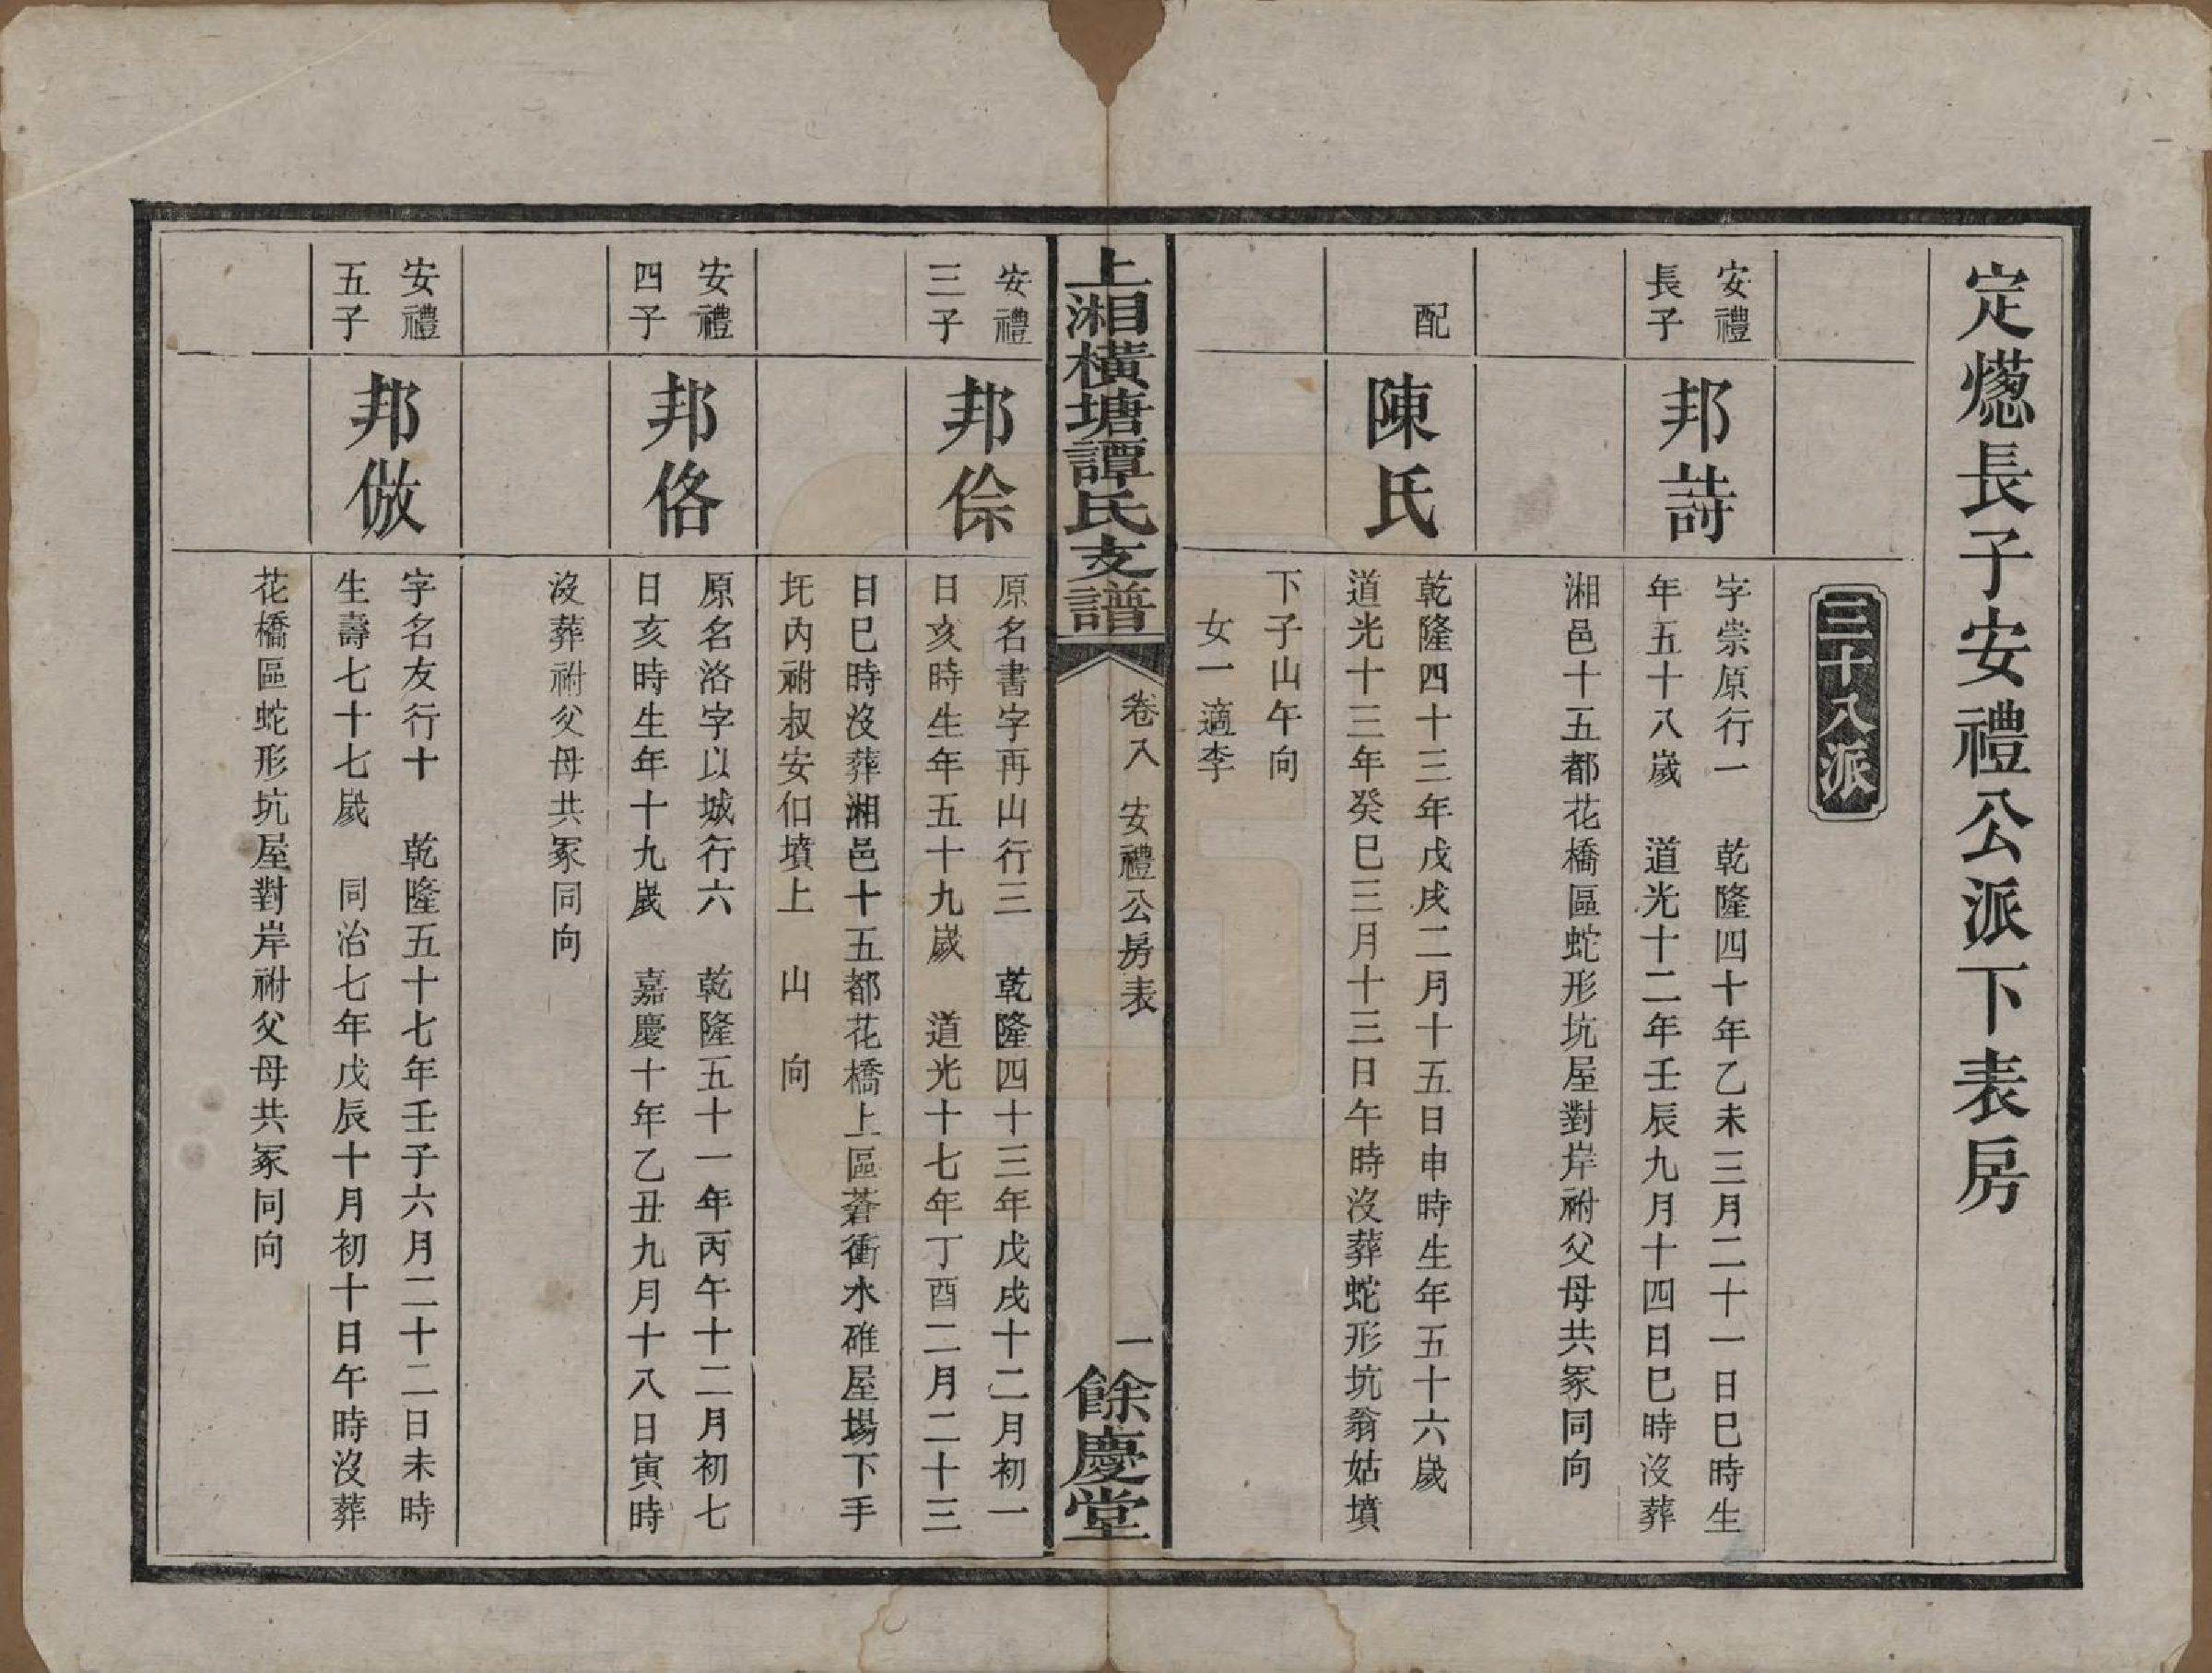 定㷓長子安禮公派下表房
三十八派
安禮
長子
邦詩
字崇原行一　乾隆四十年乙未三月二十一日巳時生
年五十八歲　道光十二年壬辰九月十四日巳時沒葬
湘邑十五都花橋區蛇形坑屋對岸祔父母共冢同向
配
陳氏
乾隆四十三年戊戌二月十五日申時生年五十六歲
道光十三年癸巳三月十三日午時沒葬蛇形坑翁姑墳
下子山午向
女一適李
上湘橫塘譚氏支譜
卷八　安禮公房表
一
餘慶堂
安禮
三子
邦䬷
原名書字再山行三　乾隆四十三年戊戌十二月初一
日亥時生年五十九歲　道光十七年丁酉二月二十三
日巳時沒葬湘邑十五都花橋上區蒼衝水碓屋場下手
圫內祔叔安伯墳上　山　向
安禮
四子
邦佫
原名洛字以城行六　乾隆五十一年丙午十二月初七
日亥時生年十九歲　嘉慶十年乙丑九月十八日寅時
沒葬祔父母共冢同向
安禮
五子
邦倣
字名友行十　乾隆五十七年壬子六月二十二日未時
生壽七十七歲　同治七年戊辰十月初十日午時沒葬
花橋區蛇形坑屋對岸祔父母共冢同向